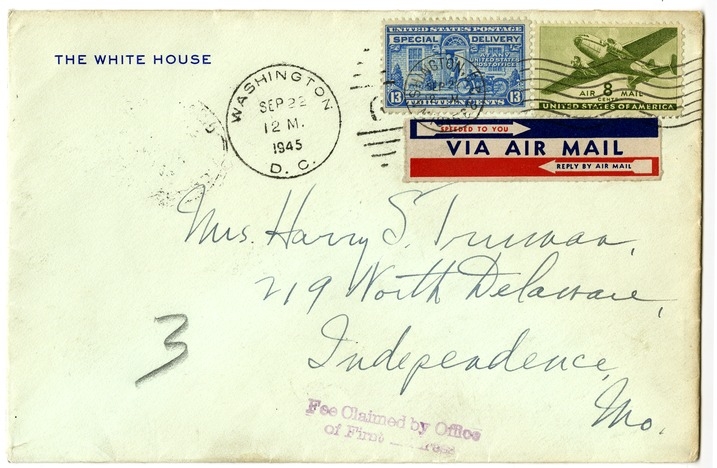 THE WHITE HOUSE
WASHINGTON
SEP 22
12 M.
1945
D. C.
UNITED STATES POSTAGE
SPECIAL DELIVERY
AT ANY
UNITED STATES
POST OFFICE
13 THIRTEEN CENTS 13
8
AIR MAIL
CENTS
UNITED STATES OF AMERICA
SPEEDED TO YOU
VIA AIR MAIL
REPLY BY AIR MAIL
Mrs. Harry S. Truman,
219 North Delaware,
Independence,
Mo.
3
Fee Claimed by Office
of First